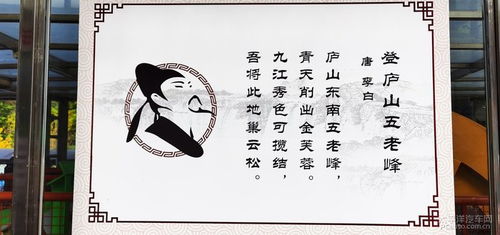 登庐山五老峰
唐 李白
庐山东南五老峰，
青天削出金芙蓉。
九江秀色可揽结，
吾将此地巢云松。
太平洋汽车网
pcauto.com.cn